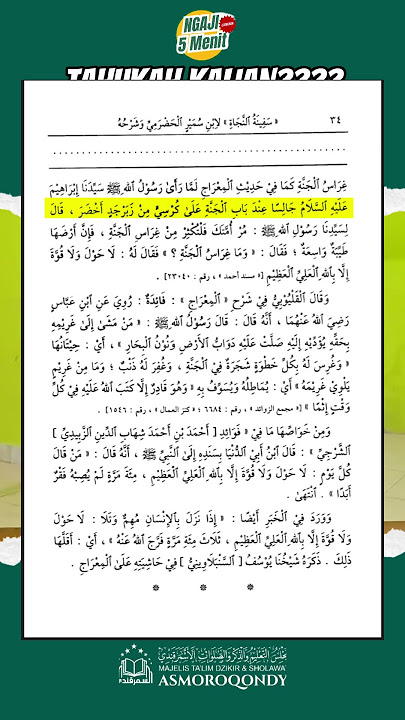 NGAJI
5 Menit
TAHUKAH KALIAN????
٣٤ « سَفِينَةُ النَّجَاةِ » لِابْنِ سُمَيْرٍ الْحَضْرَمِيِّ وَشَرْحُهُ
غِرَاسُ الْجَنَّةِ كَمَا فِيْ حَدِيْثِ الْمِعْرَاجِ لَمَّا رَأَىٰ رَسُوْلُ اللهِ ﷺ سَيِّدَنَا إِبْرَاهِيْمَ
عَلَيْهِ السَّلَامُ جَالِسًا عِنْدَ بَابِ الْجَنَّةِ عَلَىٰ كُرْسِيٍّ مِنْ زَبَرْجَدٍ أَخْضَرَ ، قَالَ
لِسَيِّدِنَا رَسُوْلِ اللهِ ﷺ : مُرْ أُمَّتَكَ فَلْتُكْثِرْ مِنْ غِرَاسِ الْجَنَّةِ ، فَإِنَّ أَرْضَهَا
طَيِّبَةٌ وَاسِعَةٌ ؛ فَقَالَ : « وَمَا غِرَاسُ الْجَنَّةِ ؟ » فَقَالَ لَهُ : لَا حَوْلَ وَلَا قُوَّةَ
إِلَّا بِاللهِ الْعَلِيِّ الْعَظِيْمِ [« مسند أحمد » ، رقم : ٢٣٠٤٠] .
وَقَالَ الْقَلْيُوْبِيُّ فِيْ شَرْحِ « الْمِعْرَاجِ » : فَائِدَةٌ : رُوِيَ عَنِ ابْنِ عَبَّاسٍ
رَضِيَ اللهُ عَنْهُمَا ، أَنَّهُ قَالَ : قَالَ رَسُوْلُ اللهِ ﷺ : « مَنْ مَشَىٰ إِلَىٰ غَرِيْمِهِ
بِحَقِّهِ يُؤَدِّيْهِ إِلَيْهِ صَلَّتْ عَلَيْهِ دَوَابُّ الْأَرْضِ وَنُوْنُ الْبِحَارِ » ، أَيْ : حِيْتَانُهَا
« وَغُرِسَ لَهُ بِكُلِّ خَطْوَةٍ شَجَرَةٌ فِيْ الْجَنَّةِ ، وَغُفِرَ لَهُ ذَنْبٌ ؛ وَمَا مِنْ غَرِيْمٍ
يَلْوِيْ غَرِيْمَهُ » أَيْ : يُمَاطِلُهُ وَيُسَوِّفُ بِهِ « وَهُوَ قَادِرٌ إِلَّا كَتَبَ اللهُ عَلَيْهِ فِيْ كُلِّ
وَقْتٍ إِثْمًا » [« مجمع الزوائد » ، رقم : ٦٦٨٤ ؛ « كنز العمال » ، رقم : ١٥٤٦] .
وَمِنْ خَوَاصِّهَا مَا فِيْ « فَوَائِدِ [ أَحْمَدَ بْنِ أَحْمَدَ شِهَابِ الدِّيْنِ الزَّبِيْدِيِّ ]
الشَّرْجِيِّ » : قَالَ ابْنُ أَبِيْ الدُّنْيَا بِسَنَدِهِ إِلَىٰ النَّبِيِّ ﷺ ، أَنَّهُ قَالَ : « مَنْ قَالَ
كُلَّ يَوْمٍ : لَا حَوْلَ وَلَا قُوَّةَ إِلَّا بِاللهِ الْعَلِيِّ الْعَظِيْمِ ، مِئَةَ مَرَّةٍ لَمْ يُصِبْهُ فَقْرٌ
أَبَدًا » . انْتَهَىٰ .
وَوَرَدَ فِيْ الْخَبَرِ أَيْضًا : « إِذَا نَزَلَ بِالْإِنْسَانِ مُهِمٌّ وَتَلَا : لَا حَوْلَ
وَلَا قُوَّةَ إِلَّا بِاللهِ الْعَلِيِّ الْعَظِيْمِ ، ثَلَاثَ مِئَةِ مَرَّةٍ فَرَّجَ اللهُ عَنْهُ » ، أَيْ : أَقَلُّهَا
ذَلِكَ . ذَكَرَهُ شَيْخُنَا يُوْسُفُ [ السَّنْبَلَاوِيْنِيُّ ] فِيْ حَاشِيَتِهِ عَلَىٰ الْمِعْرَاجِ .
MAJELIS TA'LIM DZIKIR & SHOLAWAT
ASMOROQONDY